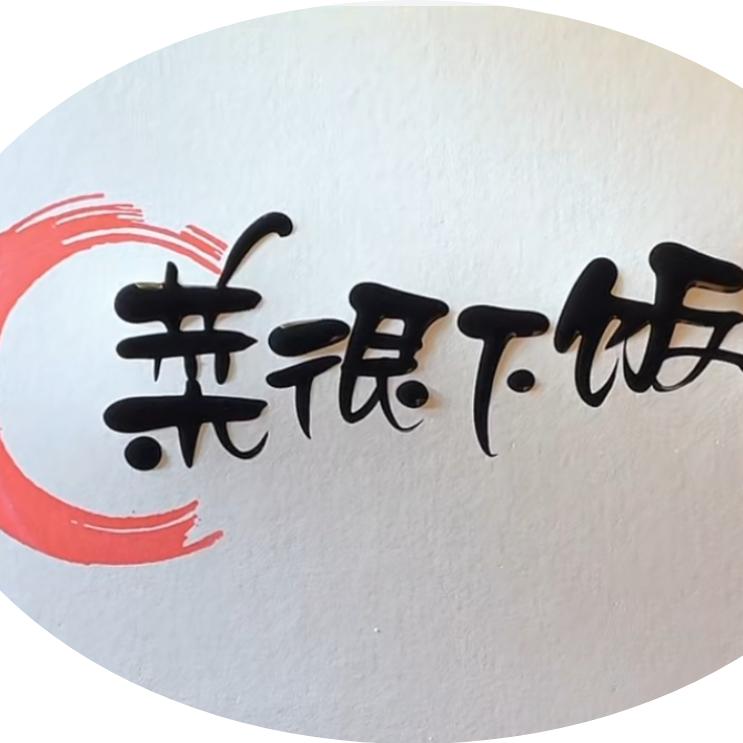 菜很下饭